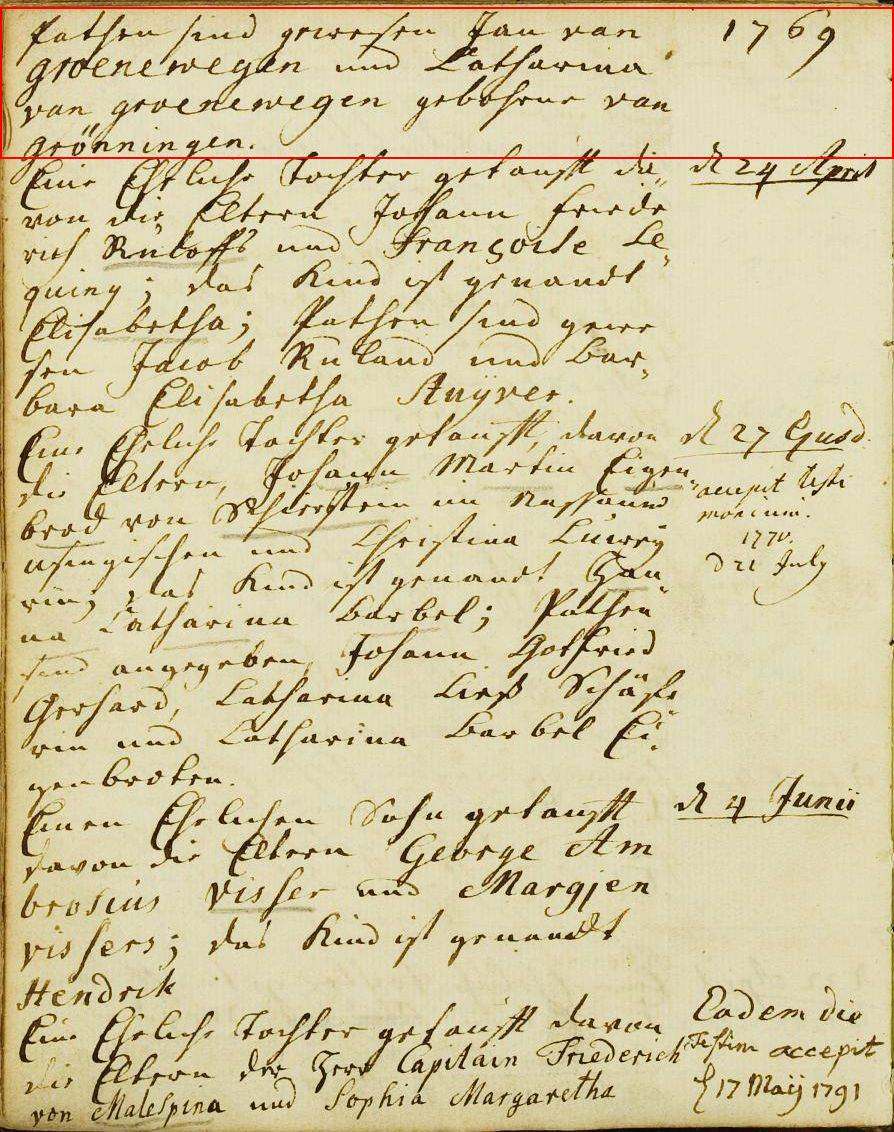 Pathen sind gewesen Jan van
groenewegen und Catharina
van groenewegen gebohrne van
grönningen.
1769
Eine Eheliche Tochter getaufft die
von die Eltern Johann Friede
rich Ruloffs und Françoise Le"
quiny; das Kind ist genandt
Elisabetha; Pathen sind gewe
sen Jacob Ruland und Bar"
bara Elisabetha Stuÿver.
d 24 April
Eine Eheliche Tochter getaufft, davon
die Eltern, Johann Martin Eigen"
brod von Schierstein im Nassauw
usingischen und Christina
ring das Kind ist genandt Han"
na Catharina Barbel; Pathen
sind angegeben, Johann Gotfried
Gerhard, Catharina Liesß Schäfe"
rin und Catharina Barbel Ei"
genbroten.
d 27 Ejusd.
accepit testi
monium.
1770.
d 21 July
Einen Ehelichen Sohn getaufft
davon die Eltern George Am
brosius Visser und Margjen
vissers; das Kind ist genandt
Hendrik
d 4 Junii
Eine Eheliche Tochter getaufft davon
die Eltern der Herr Capitain Friederich
von Malespina und Sophia Margaretha
Eadem die
Testim accepit
17 Maÿ 1791